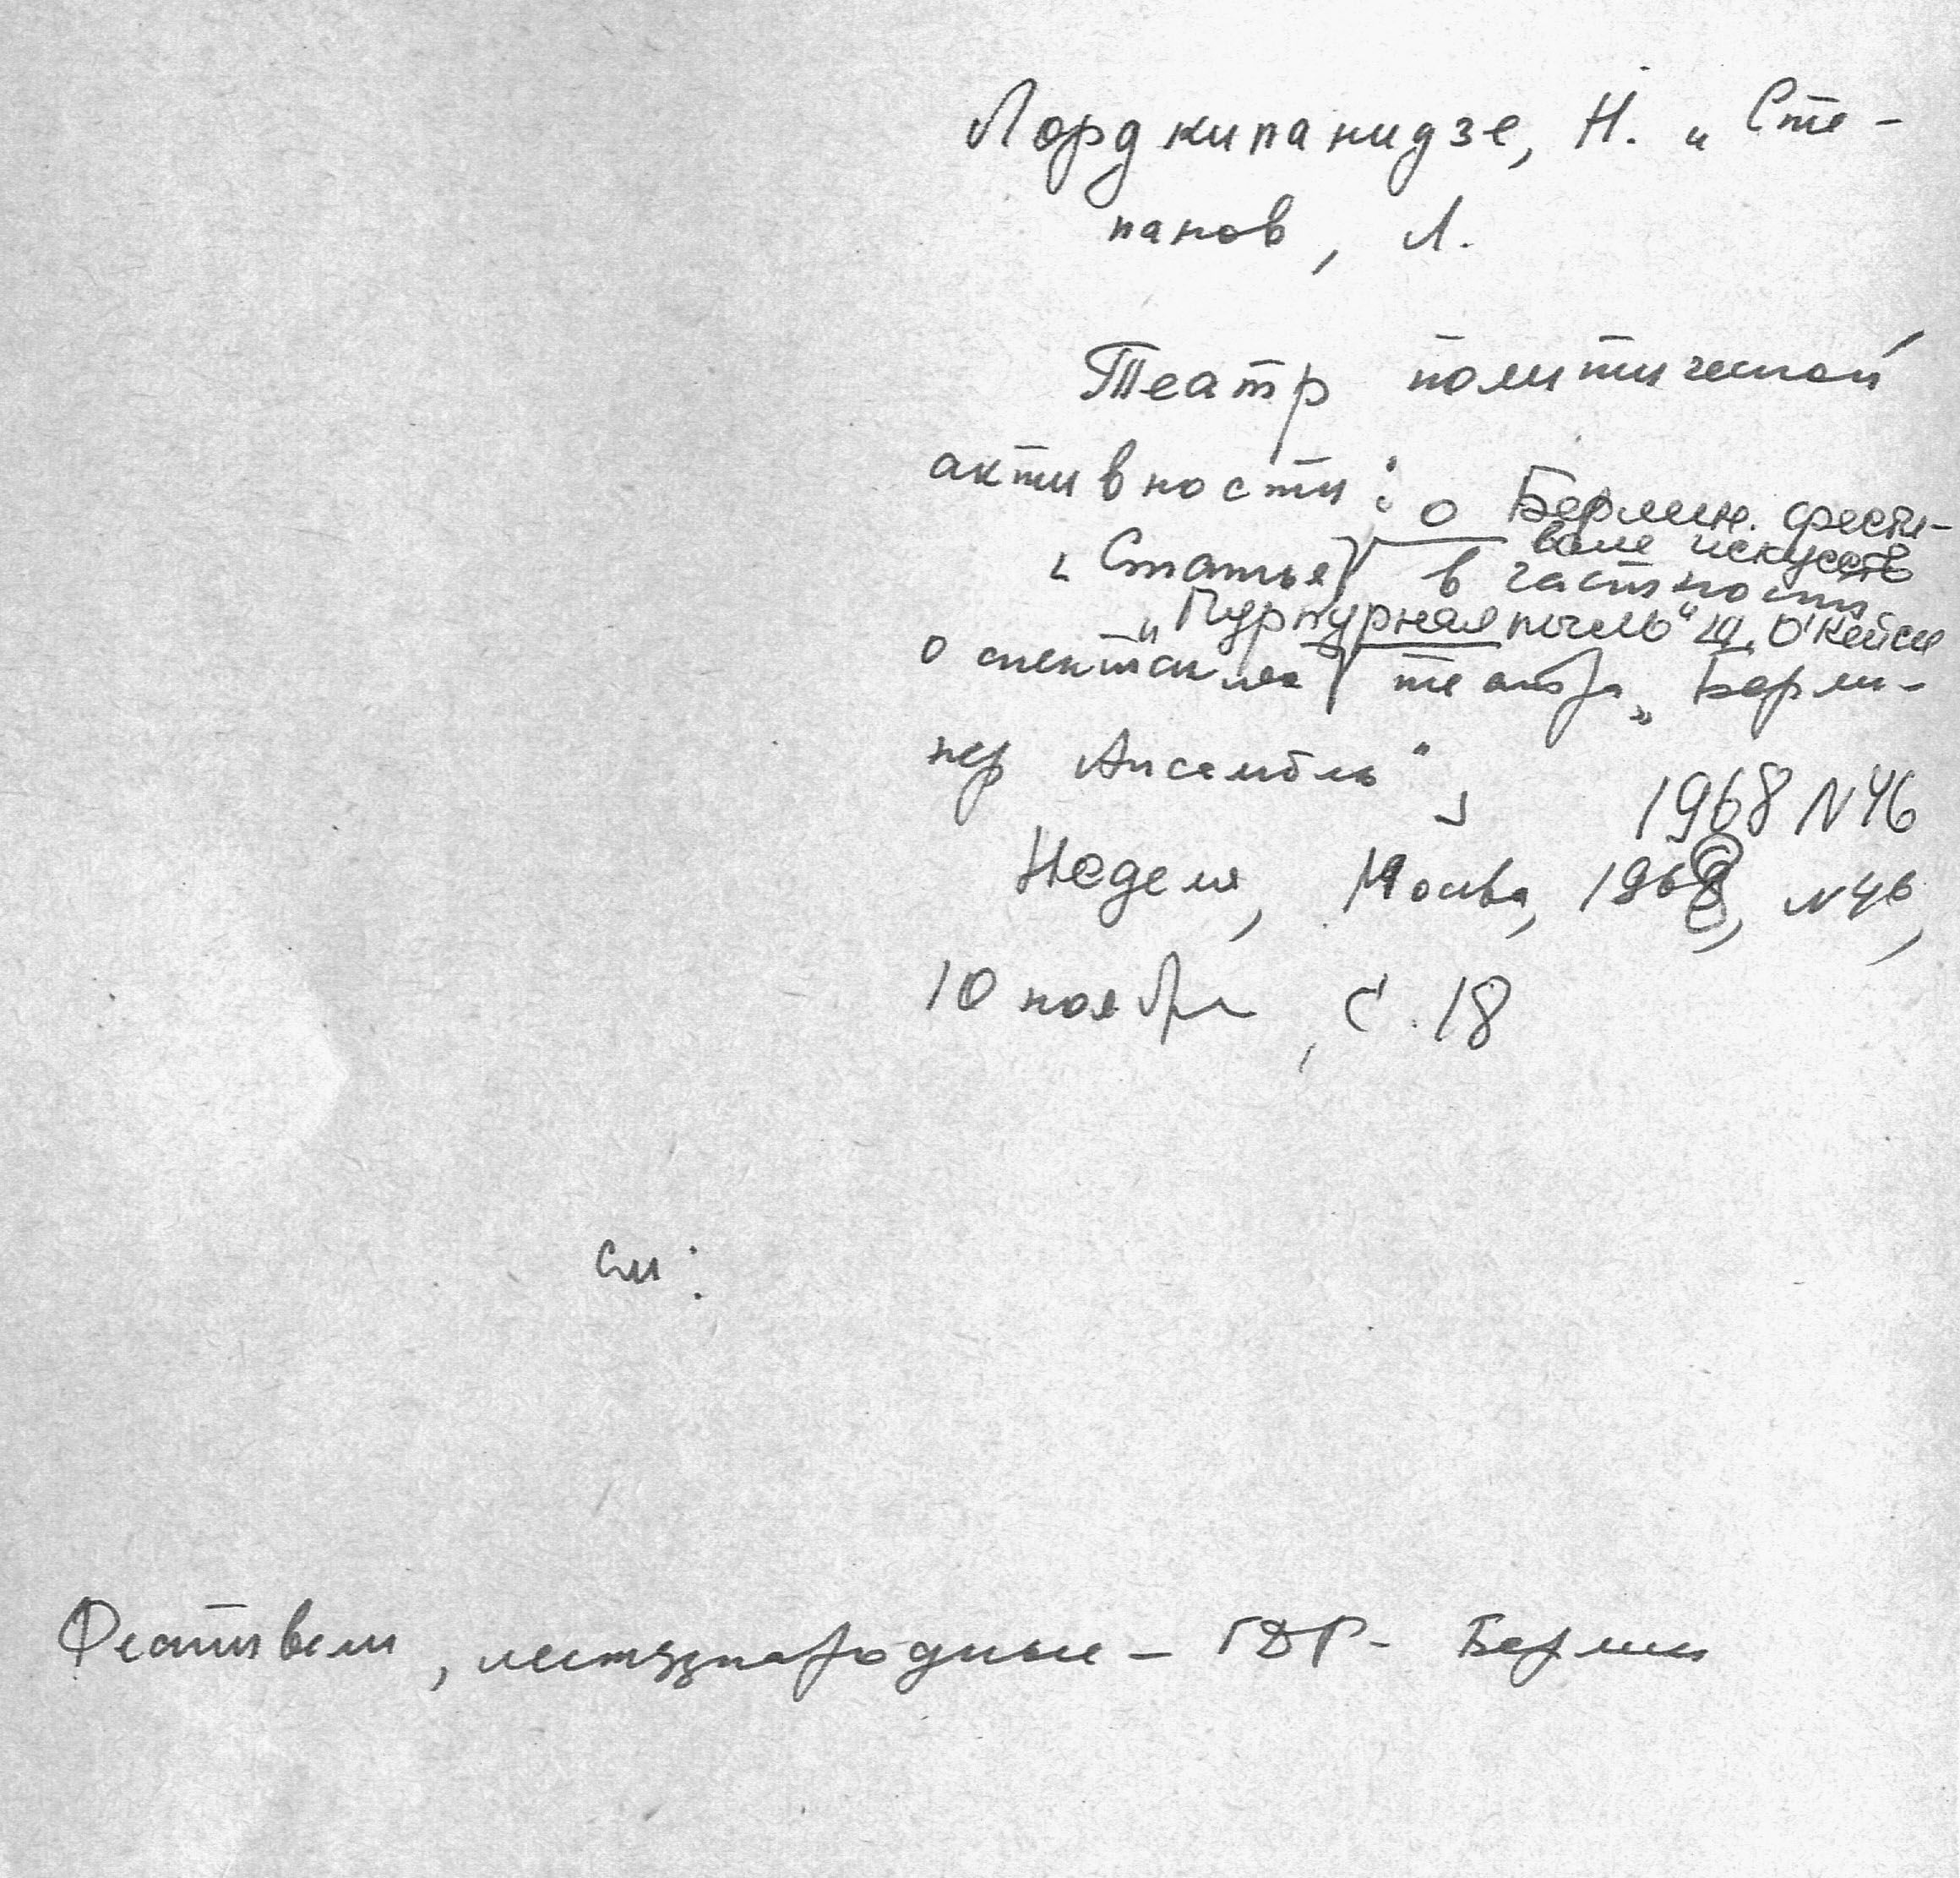 Лорджкипанидзе, Н. и Сте-
панов, Л.
Театр политической
активности:
о Берлин. фести-
вале искусств
[Статья в частности
"Пурпурная пыль" Ш. О'Кейси
о спектакле театра "Берли-
нер Ансамбль"]
1968 N46
Неделя, Москва, 1968, N46,
10 ноября, с. 18
См:
Фестивали, международные - ГДР - Берлин